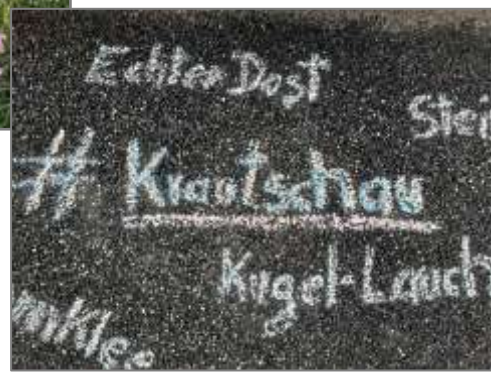 Echter Dost
Stei
# Krautschau
Kugel-Lauch
nnKlee